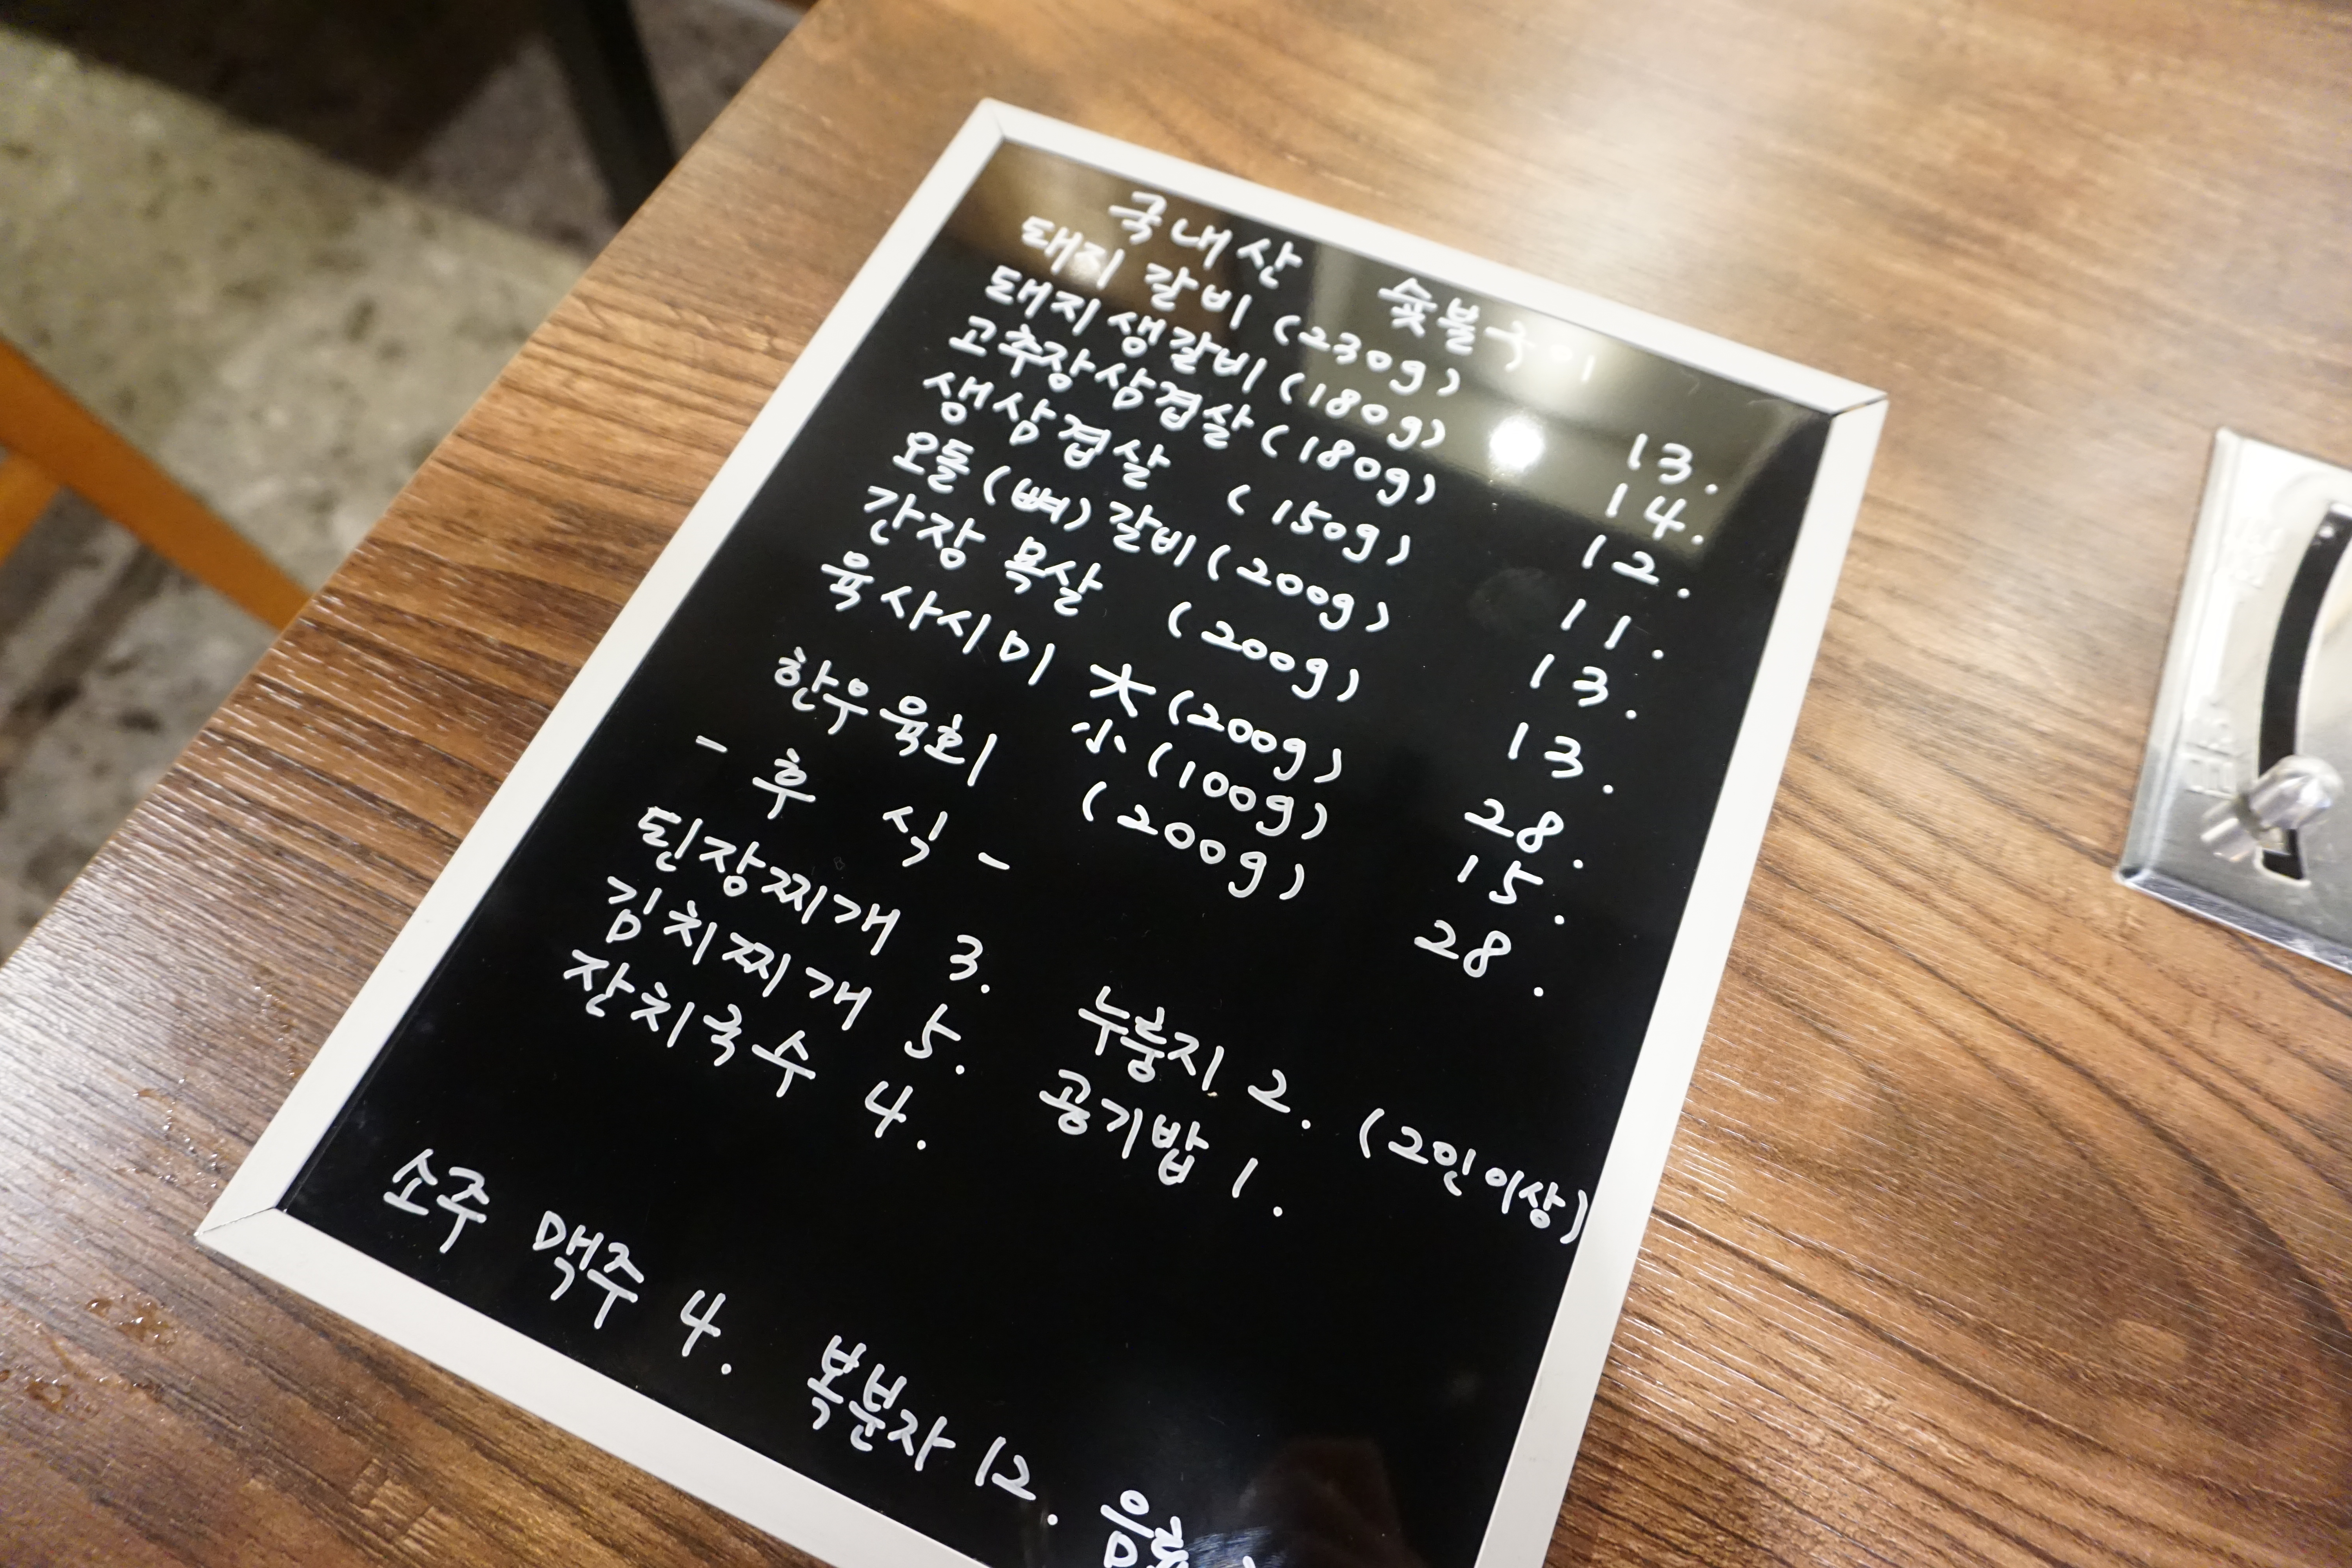 국내산 숯불구이
돼지 갈비 (230g) 13.
돼지 생갈비 (180g) 14.
고추장삼겹살 (180g) 12.
생삼겹살 (150g) 11.
오돌(뼈)갈비 (200g) 13.
간장 목살 (200g) 13.
육사시미 大 (200g) 28.
小 (100g) 15.
한우육회 (200g) 28.
- 후 식 -
된장찌개 3. 누룽지 2. (2인이상)
김치찌개 5. 공기밥 1.
잔치국수 4.
소주 맥주 4. 복분자 12.